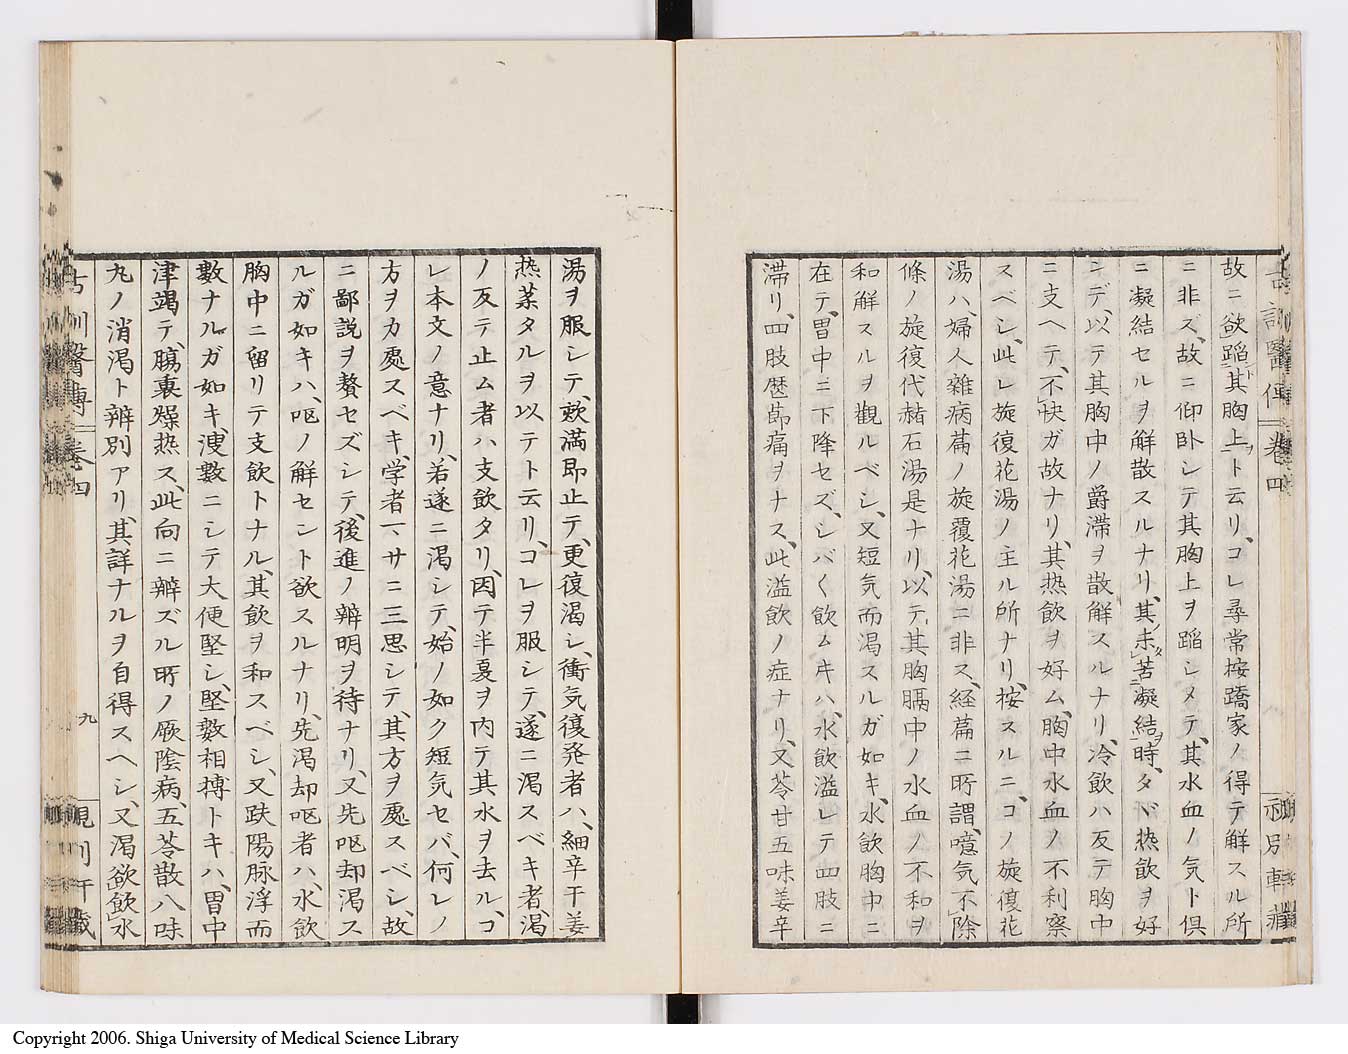 故ニ欲蹈其胸上ト云リ、コレ尋常按蹻家ノ得テ解スル所
ニ非ズ、故ニ仰卧シテ其胸上ヲ蹈シメテ、其水血ノ気ト俱
ニ凝結セルヲ解散スルナリ、其未苦凝結時、タヾ热飲ヲ好
ンデ、以テ其胸中ノ爵滞ヲ散解スルナリ、冷飲ハ反テ胸中
ニ支ヘテ、不快ガ故ナリ、其热飲ヲ好ム、胸中水血ノ不利察
スベシ、此レ旋復花湯ノ主ル所ナリ、按スルニ、コノ旋復花
湯ハ、婦人雜病萹ノ旋覆花湯ニ非ス、経萹ニ所謂、噫気不除
條ノ旋復代赭石湯是ナリ、以テ、其胸膈中ノ水血ノ不和ヲ
和解スルヲ觀ルベシ、又短気而渴スルガ如キ、水飲胸中ニ
在テ、胃中ニ下降セズ、シバ〱飲ムキハ、水飲溢レテ四肢ニ
滞リ、四肢歴節痛ヲナス、此溢飲ノ症ナリ、又苓甘五味姜辛
湯ヲ服シテ、欬満即止テ、更復渴シ、衝気復発者ハ、細辛干姜
热薬タルヲ以テト云リ、コレヲ服シテ、遂ニ渴スベキ者、渴
ノ反テ止ム者ハ支飲タリ、因テ半夏ヲ内テ其水ヲ去ル、コ
レ本文ノ意ナリ、若遂ニ渴シテ、始ノ如ク短気セバ、何レノ
方ヲカ處スベキ、学者一サニ三思シテ、其方ヲ處スベシ、故
ニ鄙説ヲ贅セズシテ、後進ノ辨明ヲ待ナリ、又先呕却渴ス
ルガ如キハ、呕ノ解セント欲スルナリ、先渴却呕者ハ、水飲
胸中ニ留リテ支飲トナル、其飲ヲ和スベシ、又趺陽脉浮而
數ナルガ如キ、溲數ニシテ大便堅シ、堅數相搏トキハ、胃中
津竭テ、腸裏燥热ス、此向ニ辨ズル所ノ厥陰病、五苓散八味
九ノ消渴ト辨別アリ、其詳ナルヲ自得スヘシ、又渴欲飲水
古訓醫傳 卷四
九
Copyright 2006. Shiga University of Medical Science Library